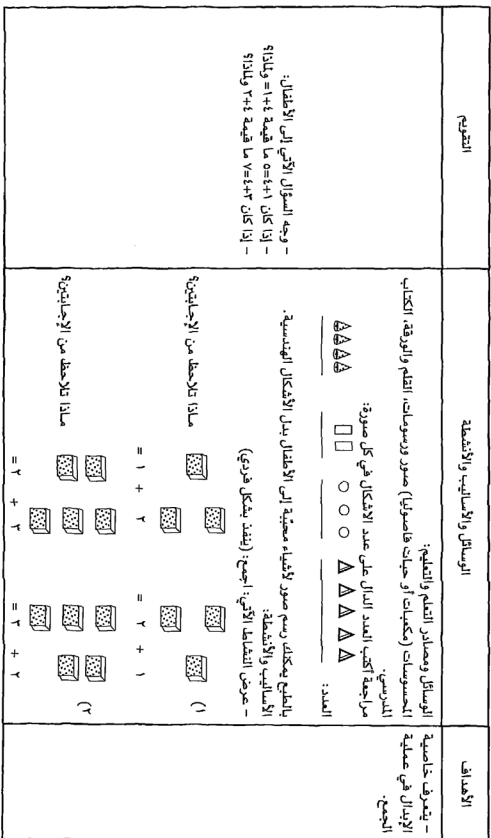 الأهداف
الوسائل والأساليب والأنشطة
التقويم
- يتعرف خاصية
الإبدال في عملية
الجمع.
الوسائل ومصادر التعلم والتعليم:
المحسوسات (مكعبات أو حبات فاصوليا) صور ورسومات، القلم والورقة، الكتاب
المدرسي.
مراجعة أكتب العدد الدال على عدد الأشكال في كل صورة:
العدد:
بالطبع يمكنك رسم صور لأشياء محببة إلى الأطفال بدل الأشكال الهندسية.
الأساليب والأنشطة:
- عرض النشاط الآتي: اجمع: (ينفذ بشكل فردي)
١)
١ + ٢ =
٢ + ١ =
ماذا تلاحظ من الإجابتين؟
٢)
٢ + ٣ =
٣ + ٢ =
ماذا تلاحظ من الإجابتين؟
- وجه السؤال الآتي إلى الأطفال:
- إذا كان ١+٤=٥ ما قيمة ٤+١= ولماذا؟
- إذا كان ٣+٤=٧ ما قيمة ٤+٣ ولماذا؟